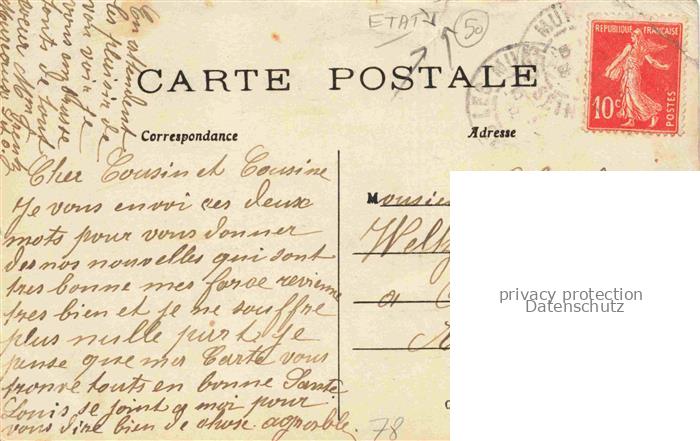 En attendant
les plaisir de
vous voir je
vous embrasse
touts de tout
coeur
ETAT
50
CARTE POSTALE
REPUBLIQUE FRANÇAISE
10c
POSTES
LES MU
Correspondance
Adresse
Cher Cousin et Cousine
Je vous envoi ces deux
mots pour vous donner
des nos nouvelles qui sont
tres bonne mes force revienne
tres bien et je ne souffre
plus nulle part. Je
pense que ma Carte vous
trouve touts en bonne Santé
Louis se joint a moi pour
vous dire bien de chose agréable.
Monsieu
a
78
privacy protection
Datenschutz